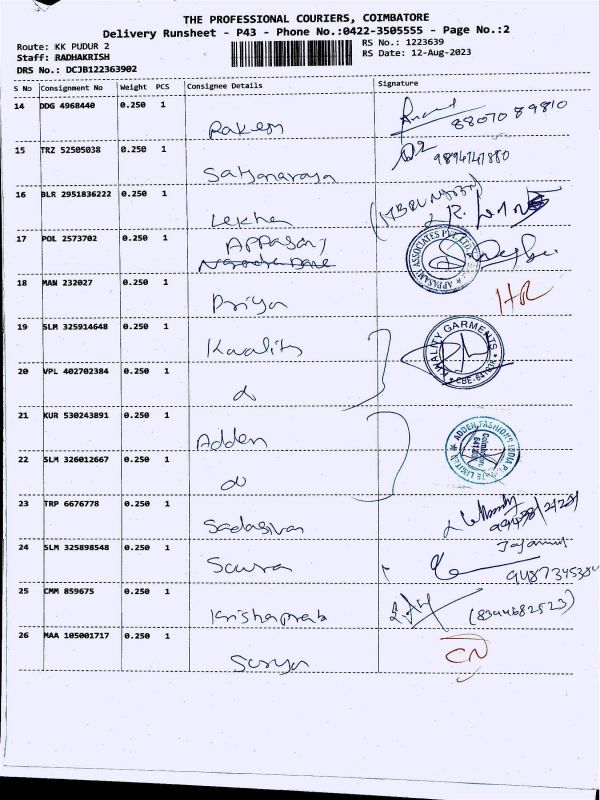 THE PROFESSIONAL COURIERS, COIMBATORE
Delivery Runsheet - P43 - Phone No.:0422-3505555 - Page No.:2
Route: KK PUDUR 2
RS No.: 1223639
Staff: RADHAKRISH
RS Date: 12-Aug-2023
DRS No.: DCJB122363902
S No Consignment No Weight PCS Consignee Details Signature
14 DDG 4968440 0.250 1
Rakesh Anand 8807089810
15 TRZ 52505038 0.250 1
Satyanaraya 9894747880
16 BLR 2951836222 0.250 1
Lekha
17 POL 2573702 0.250 1
APPASAMY
APPASAMY ASSOCIATES PVT LTD
18 MAN 232027 0.250 1
Priya HR
19 SLM 325914648 0.250 1
Kwality
KWALITY GARMENTS
20 VPL 402702384 0.250 1
do
21 KUR 530243891 0.250 1
Adden
ADDEN FASHIONS INDIA PRIVATE LIMITED
Coimbatore
22 SLM 326012667 0.250 1
do
23 TRP 6676778 0.250 1
Sadasivan
24 SLM 325898548 0.250 1
25 CMM 859675 0.250 1
Krishaprab (8344682523)
26 MAA 105001717 0.250 1
Surya CN